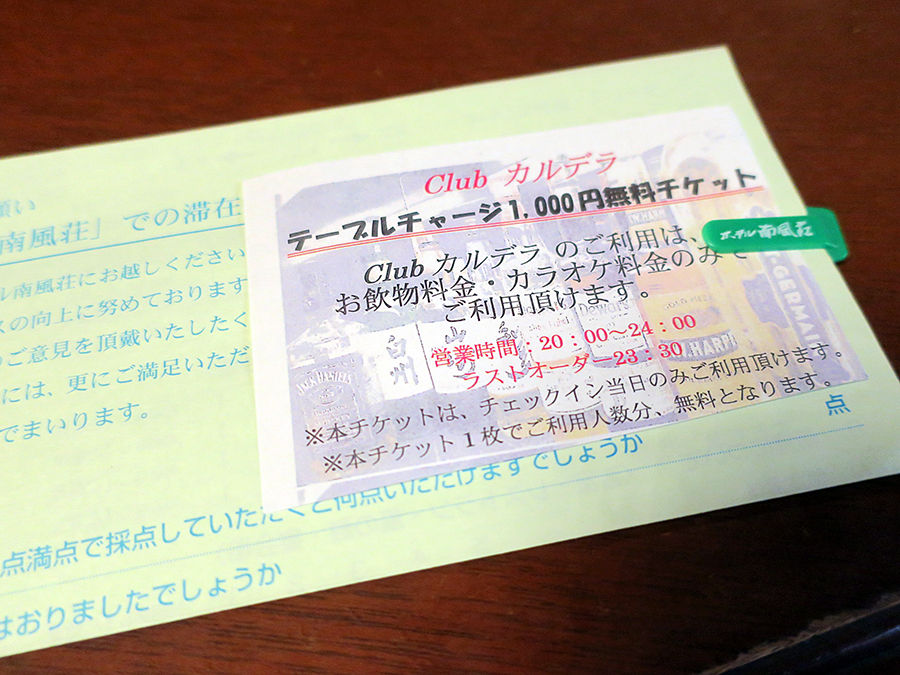 Club カルデラ
テーブルチャージ1,000円無料チケット
Club カルデラ のご利用は、
お飲物料金・カラオケ料金のみで
ご利用頂けます。
営業時間：20：00～24：00
ラストオーダー23：30
※本チケットは、チェックイン当日のみご利用頂けます。
※本チケット1枚でご利用人数分、無料となります。
ホテル南風荘
白州
JACK DANIEL'S
Dewar's
HARP
願い
南風荘」での滞在
ル南風荘にお越しください
スの向上に努めております
のご意見を頂戴いたしたく
には、更にご満足いただ
でまいります。
点
点満点で採点していただくと何点いただけますでしょうか
はおりましたでしょうか